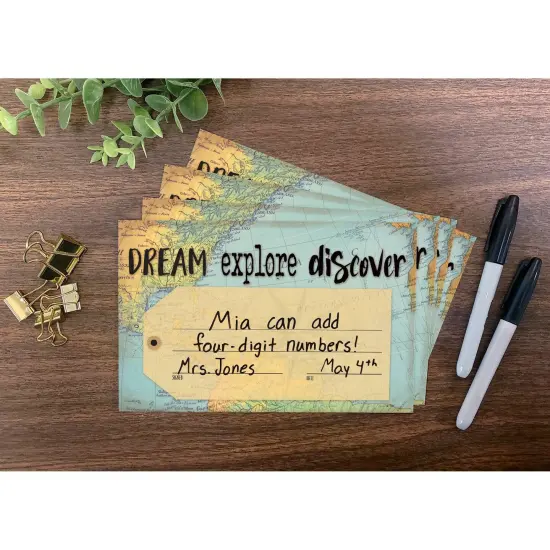 DREAM explore discover
Mia can add
four-digit numbers!
Mrs. Jones May 4th